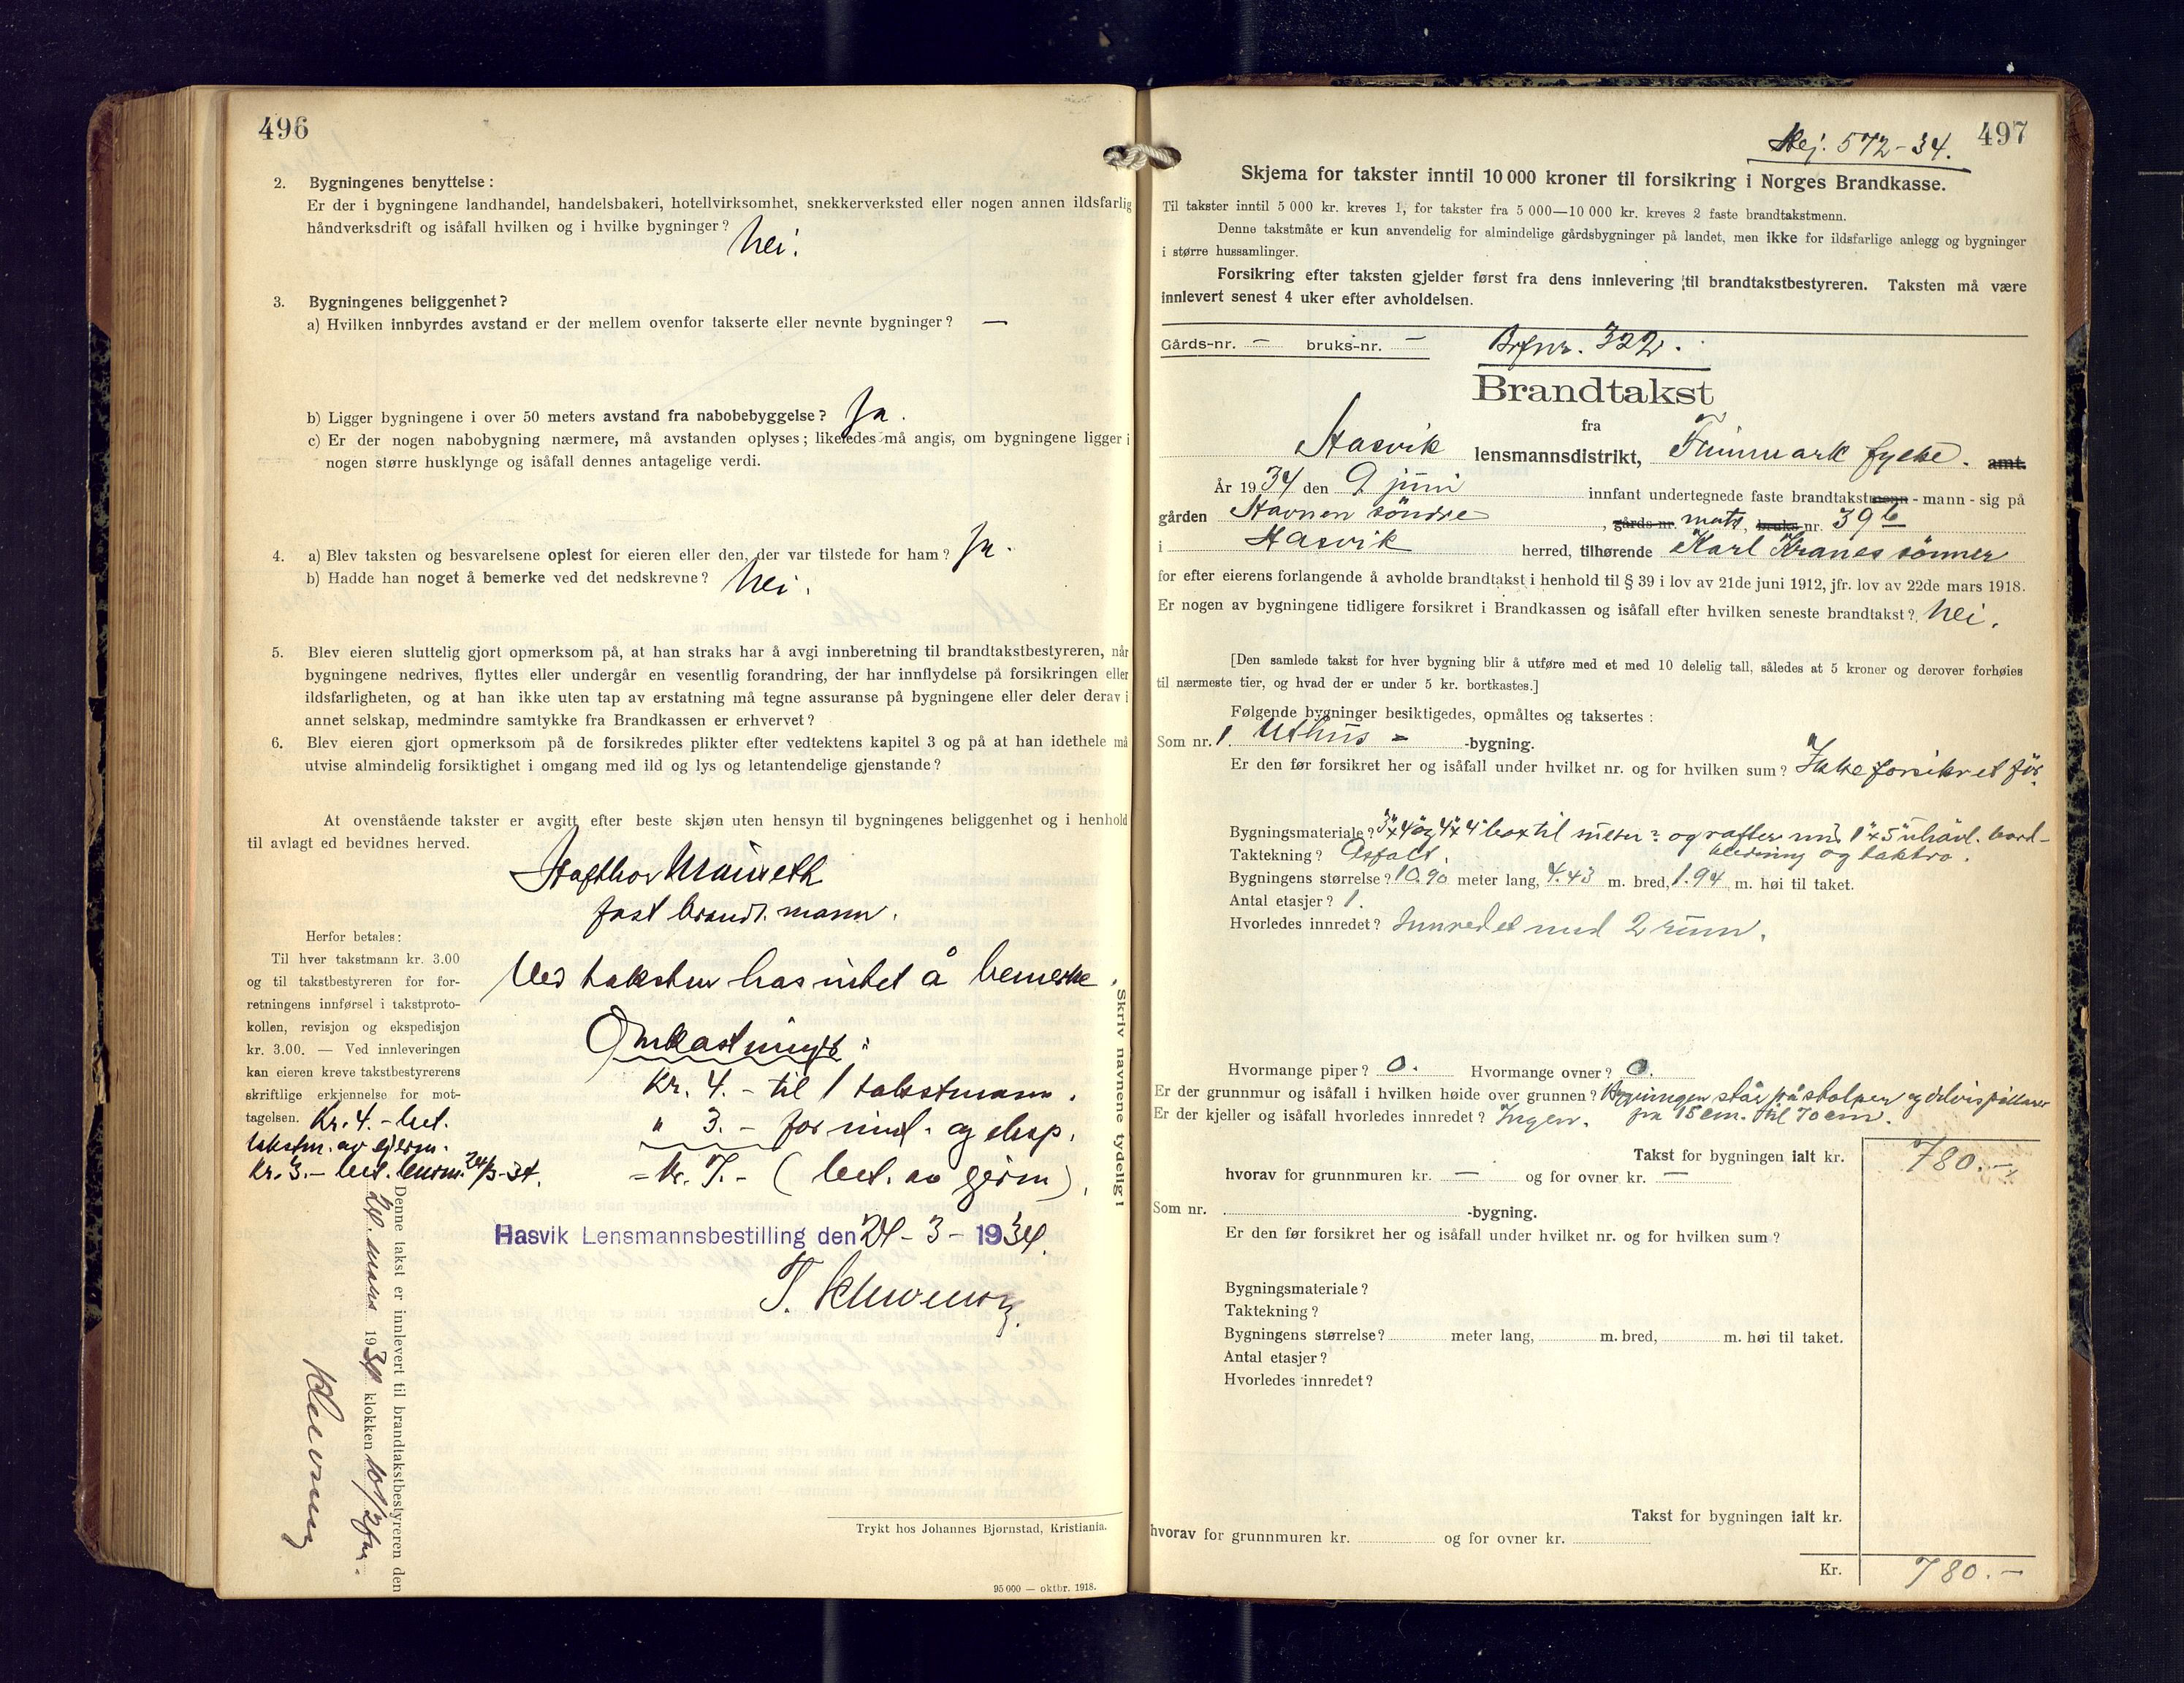 496
2. Bygningenes benyttelse:
Er der i bygningene landhandel, handelsbakeri, hotellvirksomhet, snekkerverksted eller nogen annen ildsfarlig
håndverksdrift og isåfall hvilken og i hvilke bygninger? Nei.
3. Bygningenes beliggenhet?
a) Hvilken innbyrdes avstand er der mellem ovenfor takserte eller nevnte bygninger? —
b) Ligger bygningene i over 50 meters avstand fra nabobebyggelse? Ja.
c) Er der nogen nabobygning nærmere, må avstanden oplyses; likeledes må angis, om bygningene ligger i
nogen større husklynge og isåfall dennes antagelige verdi.
4. a) Blev taksten og besvarelsene oplest for eieren eller den, der var tilstede for ham? Ja.
b) Hadde han noget å bemerke ved det nedskrevne? Nei.
5. Blev eieren sluttelig gjort opmerksom på, at han straks har å avgi innberetning til brandtakstbestyreren, når
bygningene nedrives, flyttes eller undergår en vesentlig forandring, der har innflydelse på forsikringen eller
ildsfarligheten, og at han ikke uten tap av erstatning må tegne assuranse på bygningene eller deler derav i
annet selskap, medmindre samtykke fra Brandkassen er erhvervet?
6. Blev eieren gjort opmerksom på de forsikredes plikter efter vedtektens kapitel 3 og på at han idethele må
utvise almindelig forsiktighet i omgang med ild og lys og letantendelige gjenstande?
At ovenstående takster er avgitt efter beste skjøn uten hensyn til bygningenes beliggenhet og i henhold
til avlagt ed bevidnes herved.
fast brandt. mann.
Herfor betales:
Til hver takstmann kr. 3.00
og til takstbestyreren for for-
retningens innførsel i takstproto-
kollen, revisjon og ekspedisjon
kr. 3.00. — Ved innleveringen
kan eieren kreve takstbestyrerens
skriftlige erkjennelse for mot-
tagelsen. Kr. 4.- bet.
takstm. av eieren.
Kr. 3.- bet. 24/3-34.
Ved taksten has intet å bemerke.
Omkostninger:
Kr. 4.- til 1 takstmann.
" 3.- for innf. og eksp.
= Kr. 7.- (bet. av eieren).
Hasvik Lensmannsbestilling den 24-3-1934.
Skriv navnene tydelig!
Denne takst er innlevert til brandtakstbestyreren den
24. mars 1934 klokken 10 1/2 fm.
Trykt hos Johannes Bjørnstad, Kristiania.
95 000 — oktbr. 1918.
497
572-34.
Skjema for takster inntil 10 000 kroner til forsikring i Norges Brandkasse.
Til takster inntil 5 000 kr. kreves 1, for takster fra 5 000—10 000 kr. kreves 2 faste brandtakstmenn.
Denne takstmåte er kun anvendelig for almindelige gårdsbygninger på landet, men ikke for ildsfarlige anlegg og bygninger
i større hussamlinger.
Forsikring efter taksten gjelder først fra dens innlevering til brandtakstbestyreren. Taksten må være
innlevert senest 4 uker efter avholdelsen.
Gårds-nr. — bruks-nr. — Brf.nr. 322.
Brandtakst
fra
Hasvik lensmannsdistrikt, Finnmark fylke. amt.
År 1934 den 9 juni innfant undertegnede faste brandtakstmenn - mann - sig på
gården Havnen söndre, gårds-nr. matr. bruks-nr. 39b
i Hasvik herred, tilhørende Karl Kranes sønner
for efter eierens forlangende å avholde brandtakst i henhold til § 39 i lov av 21de juni 1912, jfr. lov av 22de mars 1918.
Er nogen av bygningene tidligere forsikret i Brandkassen og isåfall efter hvilken seneste brandtakst? Nei.
[Den samlede takst for hver bygning blir å utføre med et med 10 delelig tall, således at 5 kroner og derover forhøies
til nærmeste tier, og hvad der er under 5 kr. bortkastes.]
Følgende bygninger besiktigedes, opmåltes og taksertes:
Som nr. 1. Uthus -bygning.
Er den før forsikret her og isåfall under hvilket nr. og for hvilken sum? Ikke forsikret før.
Bygningsmateriale? 3"x4" og 4"x4" og rafter med 1"x5" uhövl. bord-
kledning og taktro.
Taktekning? Asfalt.
Bygningens størrelse? 10.90 meter lang, 4.43 m. bred, 1.94 m. høi til taket.
Antal etasjer? 1.
Hvorledes innredet? Innredet med 2 rum.
Hvormange piper? 0. Hvormange ovner? 0.
Er der grunnmur og isåfall i hvilken høide over grunnen? Bygningen står på stolper og delvis pillarer
fra 15 cm. til 70 cm.
Er der kjeller og isåfall hvorledes innredet? Ingen.
Takst for bygningen ialt kr. 780.—
hvorav for grunnmuren kr. — og for ovner kr. —
Som nr. -bygning.
Er den før forsikret her og isåfall under hvilket nr. og for hvilken sum?
Bygningsmateriale?
Taktekning?
Bygningens størrelse? meter lang, m. bred, m. høi til taket.
Antal etasjer?
Hvorledes innredet?
Takst for bygningen ialt kr.
hvorav for grunnmuren kr. og for ovner kr.
Kr. 780.—